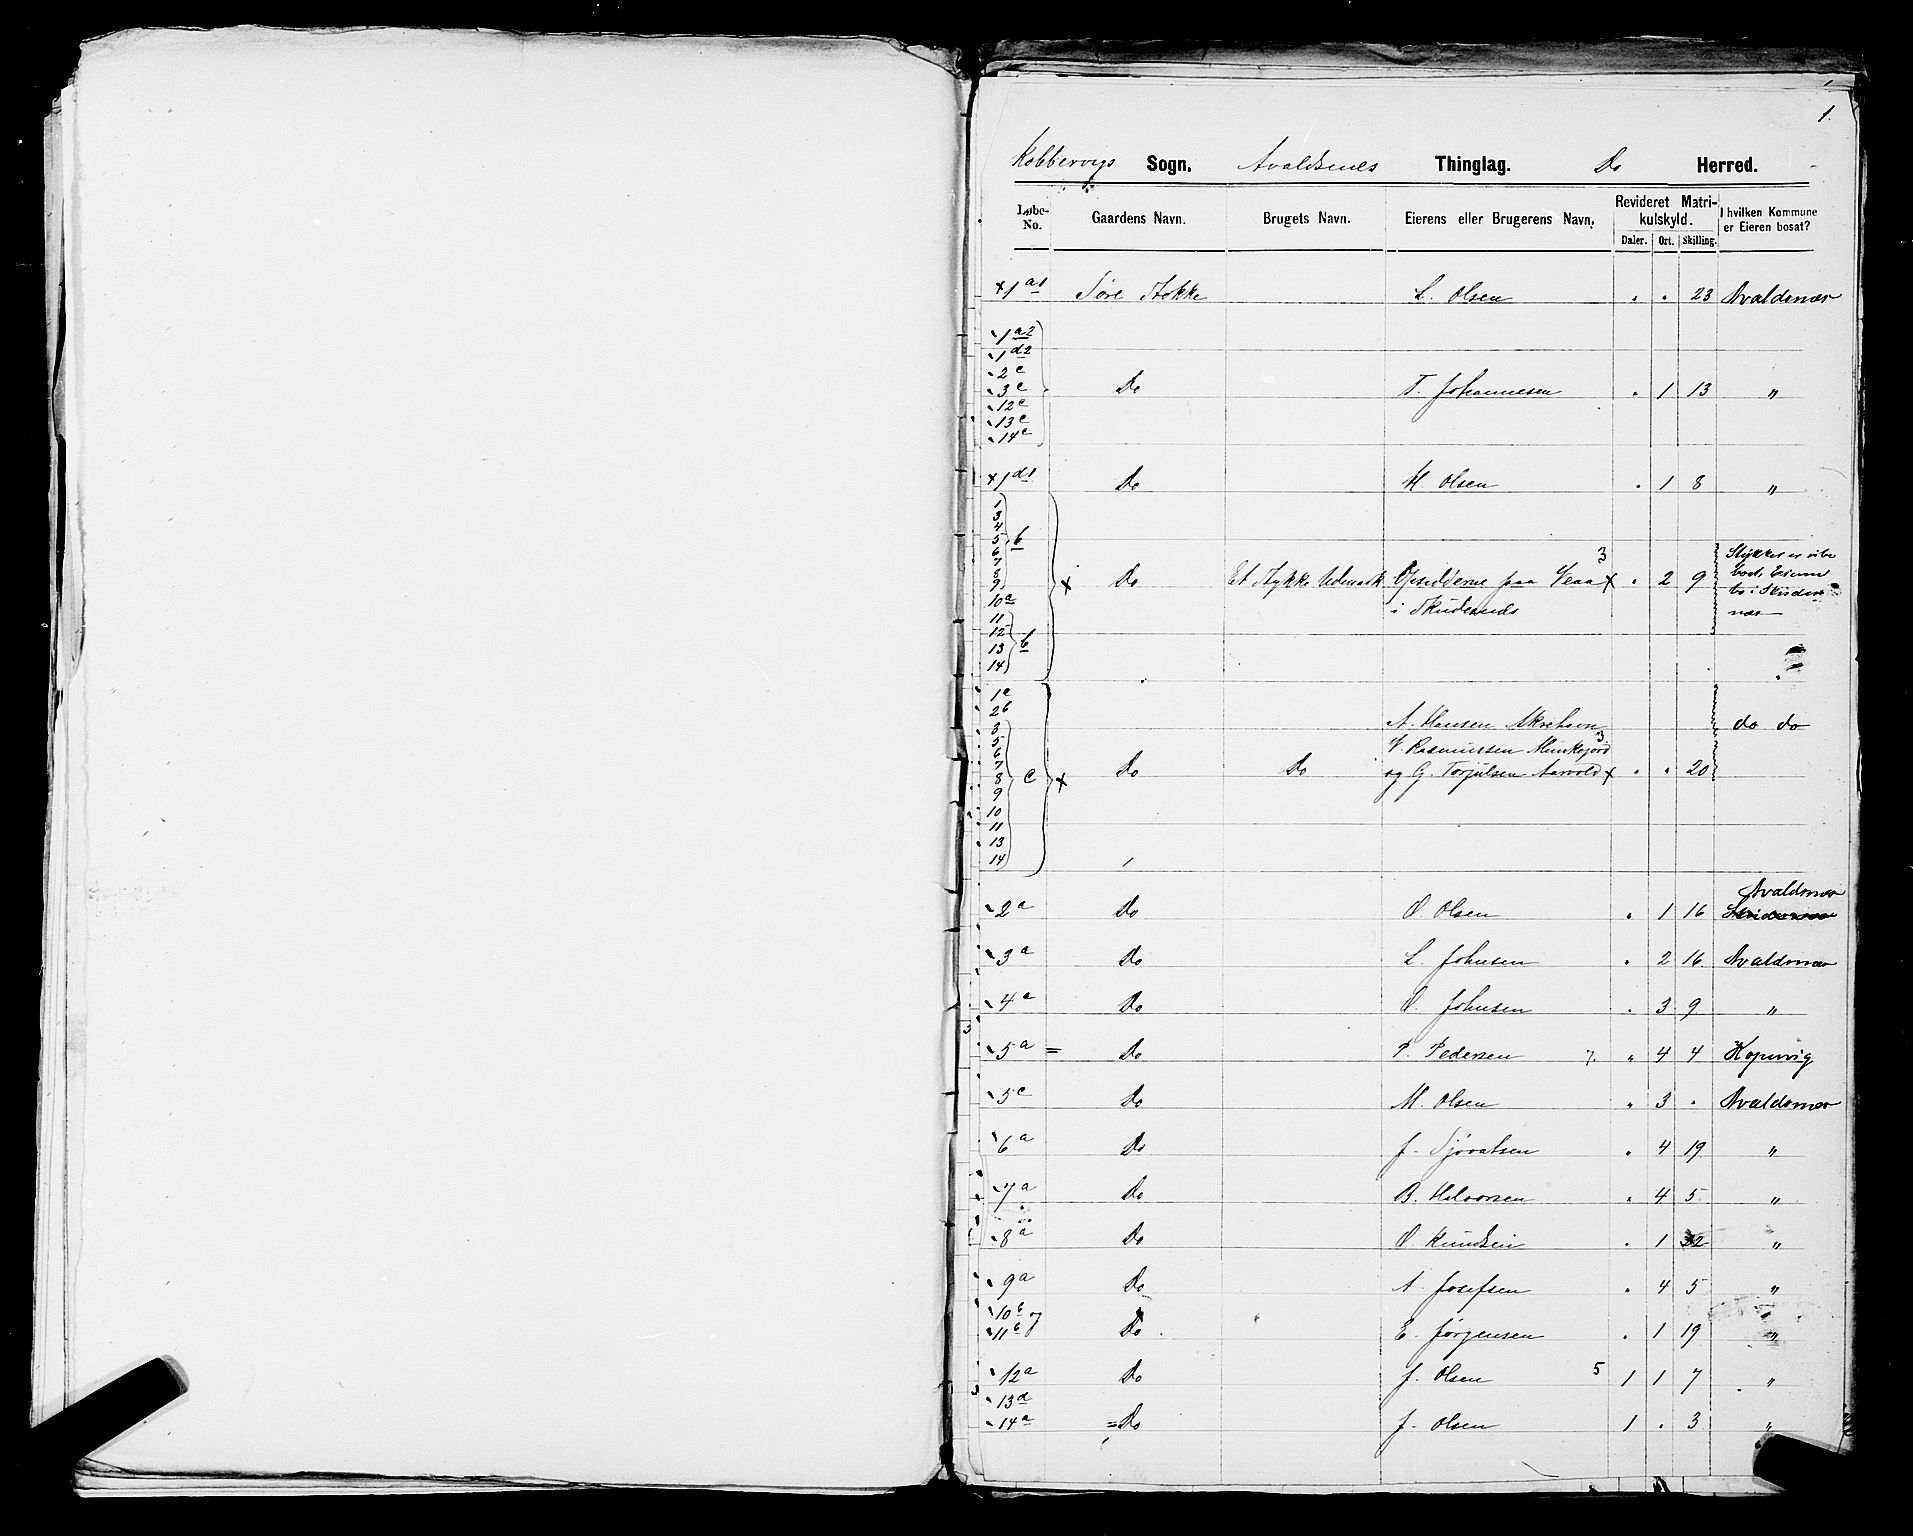 1.
Kobbervigs Sogn. Avaldsnes Thinglag. Do Herred.
Løbe-No. Gaardens Navn. Brugets Navn. Eierens eller Brugerens Navn. Revideret Matrikulskyld. I hvilken Kommune er Eieren bosat?
Daler. Ort. Skilling.
x 1 a1 Søre Stokke L. Olsen " " 23 Avaldsnæs
1 a2
1 d2
2 c
3 c Do T. Johannesen " 1 13 "
12 c
13 c
14 c
x 1 d1 Do M. Olsen " 1 8 "
1
3
4
5 b
6 3 Stykket er ube
7 boet, Eierne
8 x Do Et Stykke Udmark Opsidderne paa Veaa x " 2 9
9 bo i Skudes
10 a i Skudesnes næs
11
12
13 b
14
1 c
2 b
3 A. Hansen Akrehavn do do
5
6 V. Rasmussen Munkejord 3
7 Do Do og G. Torjulsen Aarvold x " " 20
8 c x
9
10
11
13
14
Avaldsnæs
2 a Do O. Olsen " 1 16
3 a Do L. Johnsen " 2 16 Avaldsnæs
4 a Do O. Johnsen " 3 9 "
5 a = Do P. Pedersen 7. " 4 4 Kopervig
5 c Do M. Olsen " 3 " Avaldsnæs
6 a Do J. Sjovatsen " 4 19 "
7 a Do B. Halvorsen " 4 5 "
8 a Do O. Knudsen " 1 "
9 a Do A. Josefsen " 4 5 "
10 b og
11 b Do E. Jörgensen " 1 19 "
12 a Do J. Olsen 5 1 1 7 "
13 a
14 a = Do J. Olsen 1 " 3 "